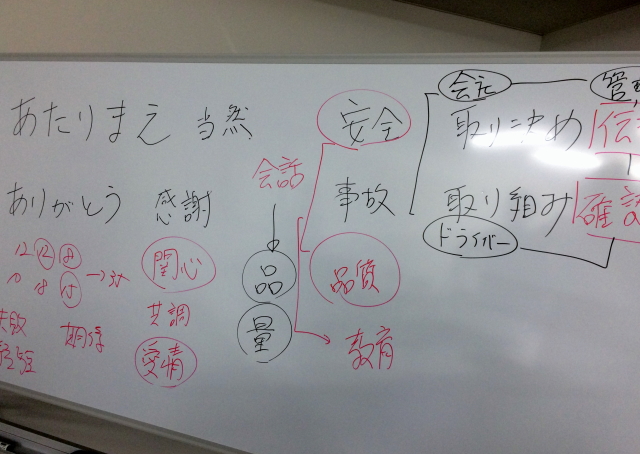 あたりまえ 当然
ありがとう 感謝
関心
共調
愛情
期待
失敗
会話
品
量
安全
事故
品質
教育
会社
取り決め
取り組み
ドライバー
確認